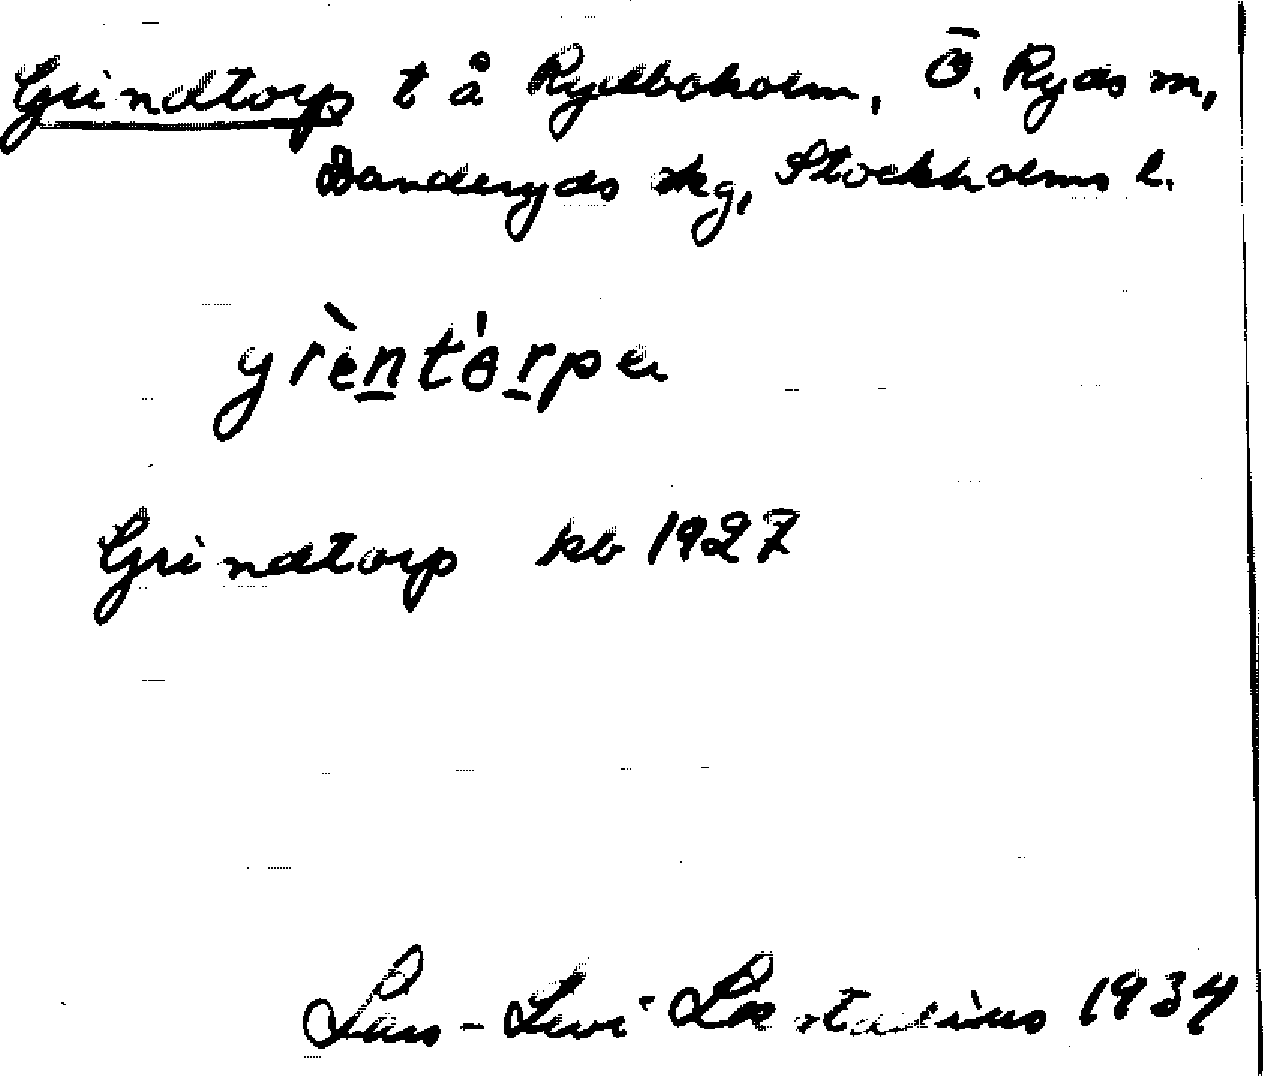 Grindtorp t å Rydboholm, Ö. Ryds sn,
Danderyds skg, Stockholms l.
grènt`ɵrpa
Grindtorp kb 1927
Lars-Levi Læstadius 1934